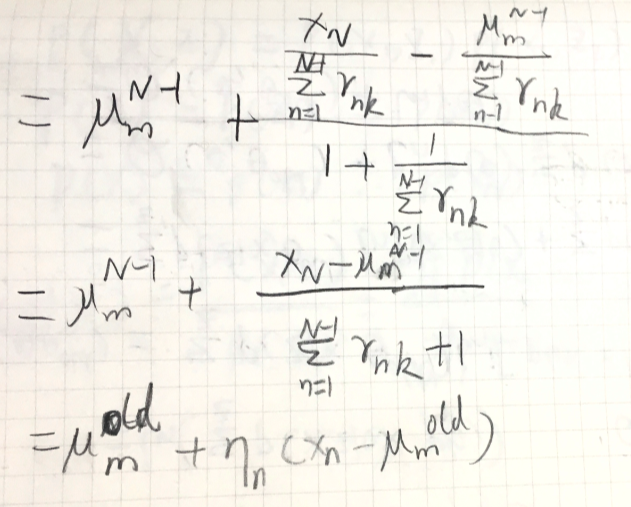 = μ_m^{N-1} + \frac{\frac{x_N}{\sum_{n=1}^{N-1} r_{nk}} - \frac{μ_m^{N-1}}{\sum_{n-1}^{N-1} r_{nk}}}{1 + \frac{1}{\sum_{n=1}^{N-1} r_{nk}}}
= μ_m^{N-1} + \frac{x_N - μ_m^{N-1}}{\sum_{n=1}^{N-1} r_{nk} + 1}
= μ_m^{old} + η_n (x_n - μ_m^{old})